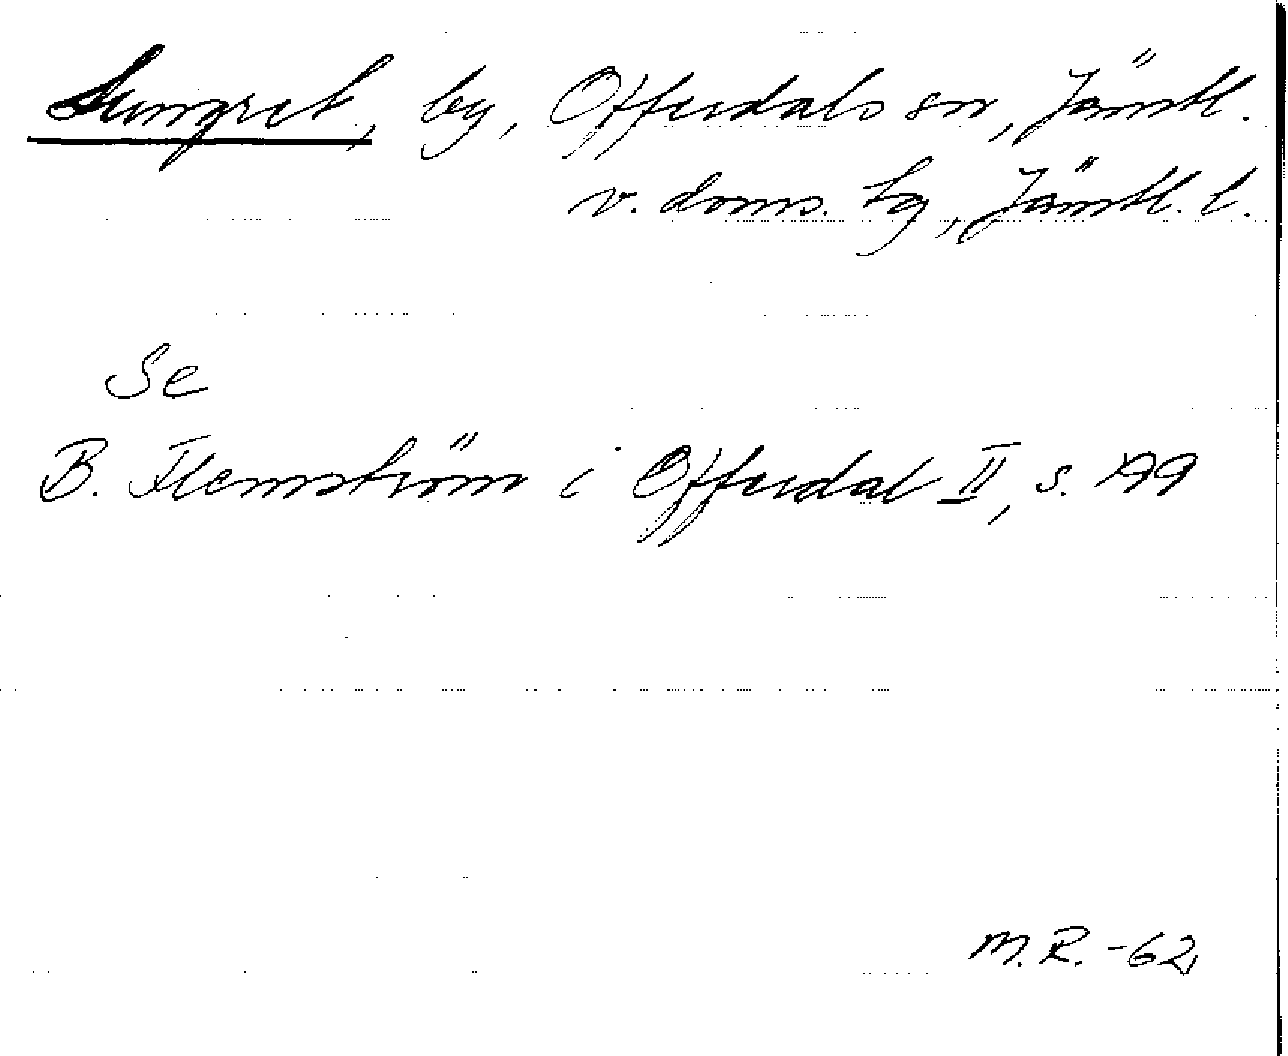 Lungret, by, Offerdals sn, Jämtl.
v. doms. tg, Jämtl. l.
Se
B. Flemström i Offerdal II, s. 199
M.R. -62